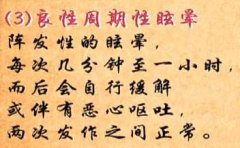 (3)良性周期性眩晕
阵发性的眩晕，
每次几分钟至一小时，
而后会自行缓解
或伴有恶心呕吐，
两次发作之间正常。